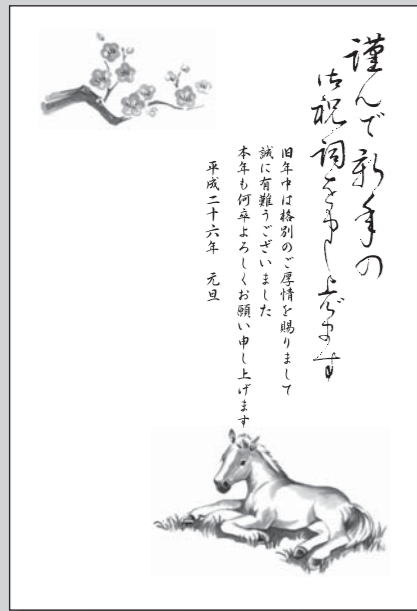 謹んで新年の
御祝詞を申し上げます
旧年中は格別のご厚情を賜りまして
誠に有難うございました
本年も何卒よろしくお願い申し上げます
平成二十六年　元旦